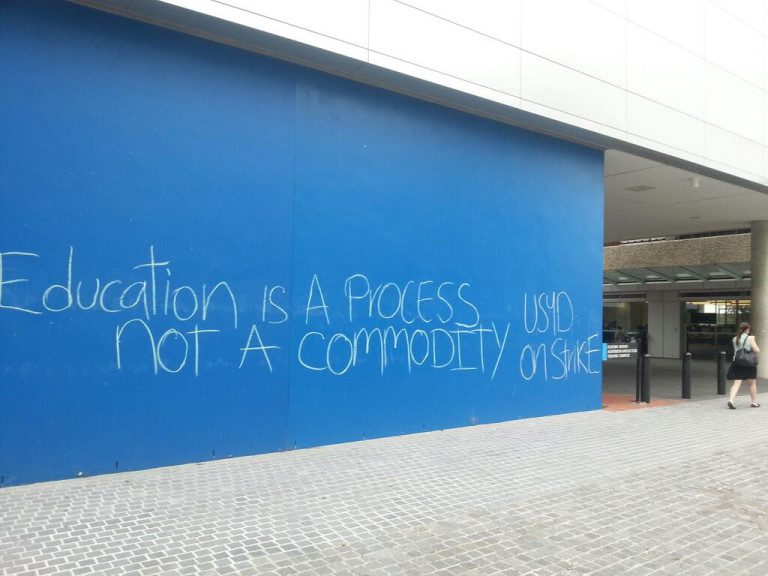 Education is A Process
not A COMMODITY
USYD
on strike